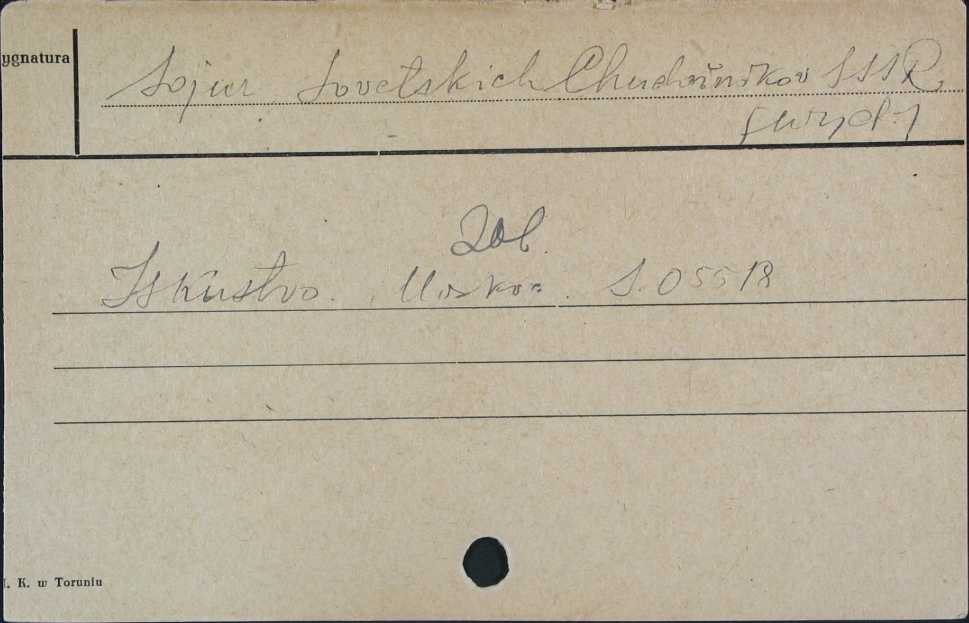 ygnatura
Sojuz Sovetskich Chudožnikov SSSR,
(wyd.)
Zob.
Iskustvo. Moskva. S.05518
I. K. w Toruniu